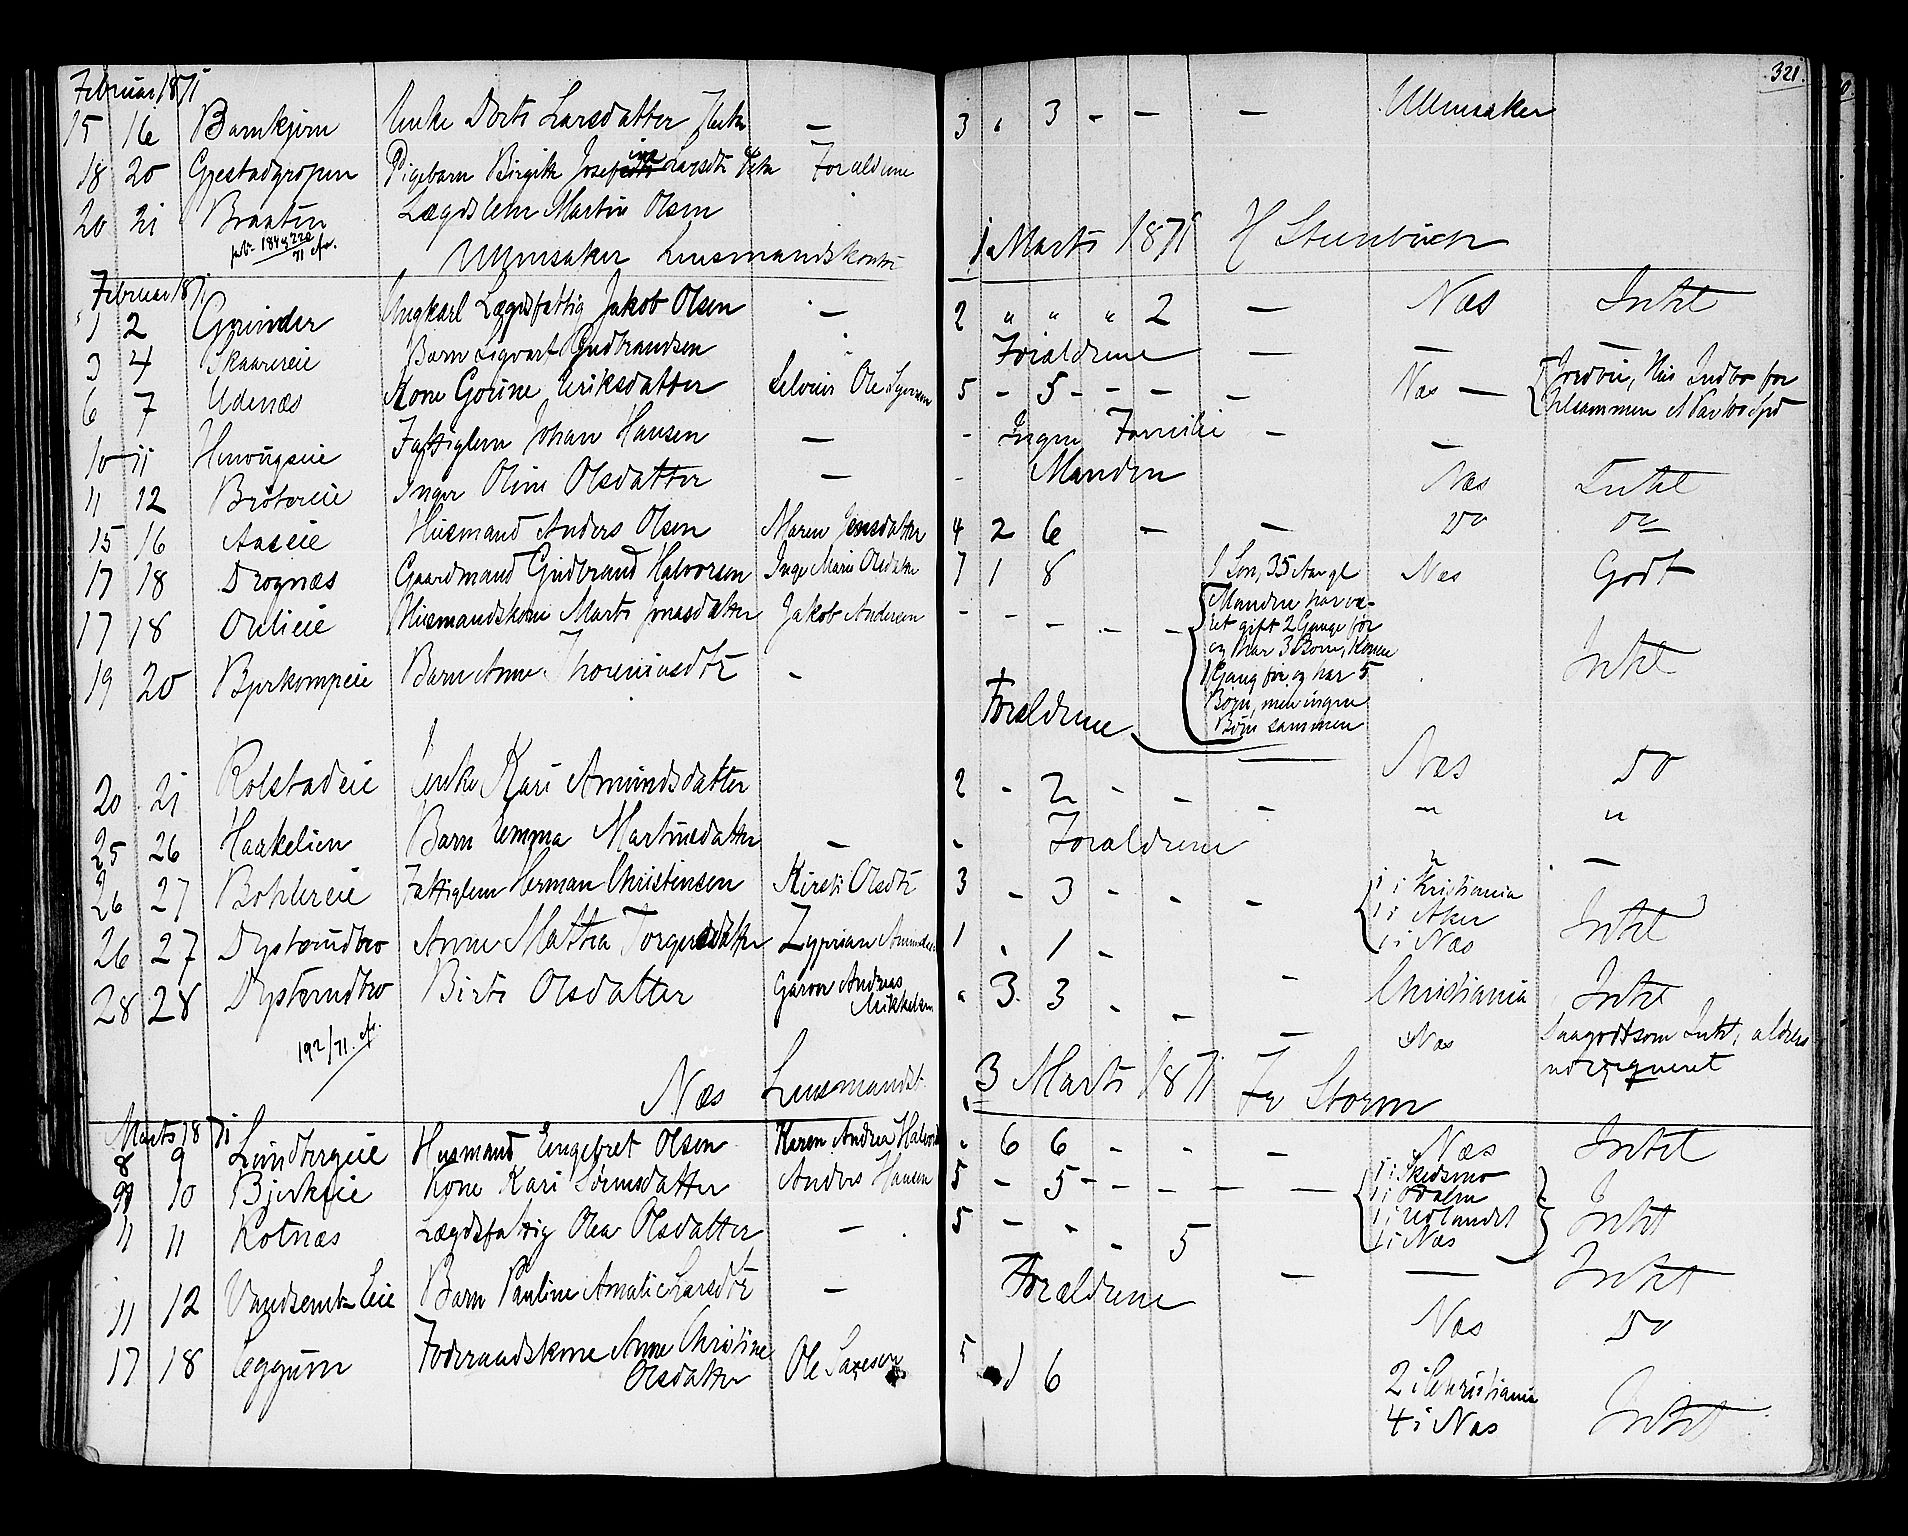 321.
Februar 1871
15 16 Barnkjern Enke Dorte Larsdatter Flesta — 3 „ 3 - — — Ullensaker
18 20 Gjestadgropen Pigebarn Birgitte Josefine Larsdtr Forældrene
20 21 Braaten Lægdslem Martin Olsen
184 & 220/71 cfr.
Ullensaker Lensmandskontor 1 Marts 1871 H Steenbuch
Februar 1871
1 2 Grinder Ungkarl Lægdsfattig Jakob Olsen — 2 „ „ „ 2 — Næs Intet
3 4 Skaarereie Barn Sigvart Gudbrandsen Forældrene — — —
6 7 Udenæs Kone Gorine Eriksdatter Selveier Ole Syversen 5 - 5 - - - - Næs — Jordvei, Hus Indbo for
tilsammen
10 11 Henougseie Fattiglem Johan Hansen — - Ingen Familie — —
11 12 Brötereie Inger Oline Olsdatter — - Manden Næs Intet
15 16 Aaseie Husmand Anders Olsen Maren Jensdatter 4 2 6 - — Do Do
17 18 Drognæs Gaardmand Gudbrand Halvorsen Inge Marie Olsdatter 7 1 8 1 Søn, 35 Aar gl Næs Godt
17 18 Ouleie Husmandskone Marte Jonasdatter Jakob Andersen - - - - -
Manden har væ-
ret gift 2 Gange før
og har 3 Børn, Konen
1 Gang før og har 5
Børn, men ingen
Børn sammen
Intet
19 20 Bjerkompeie Barn Anne Thoreniusdtr - Forældrene —
20 21 Rolstadeie Enke Kari Amundsdatter 2 - 2 - - - Næs Do
25 26 Haakelien Barn Emma Martinsdatter — - Forældrene „ „
26 27 Bohlereie Fattiglem Herman Christensen Kirsti Olsdtr 3 - 3 - - - 1 i Kristiania
1 i Aker
1 i Næs
Intet
26 27 Dysterudbro Anne Mathea Torgersdatter Zyprian Amundsen 1 . 1 - - Christiania Intet
28 28 Dysterudbro Birte Olsdatter Garver Andreas
Mikkelsen
3 3 - - — Næs Saagodtsom Intet, aldeles
192/71 cfr.
Næs Lensmandst. 3 Marts 1871 Fr Storm
Marts 1871
8 9 Lundbergeie Husmand Engebret Olsen Karen Andrea Halvorsd „ 6 6 - - — Næs Intet
9 10 Bjerkeie Kone Kari Sörensdatter Anders Hansen 5 - 5 - - - — — 1 i Skedsmo
1 i
1 i Udlandet
1 i Næs
Intet
11 11 Rotnæs Lægdsfattig Olea Olsdatter — 5 - - - 5 — — Intet
11 12 Vandsemb-Eie Barn Pauline Amalie Larsdtr — Forældrene Næs Do
17 18 Eggum Foderaadskone Anne Christine
Olsdatter
Ole Laresen 5 1 6 2 i Christiania
4 i Næs
Intet